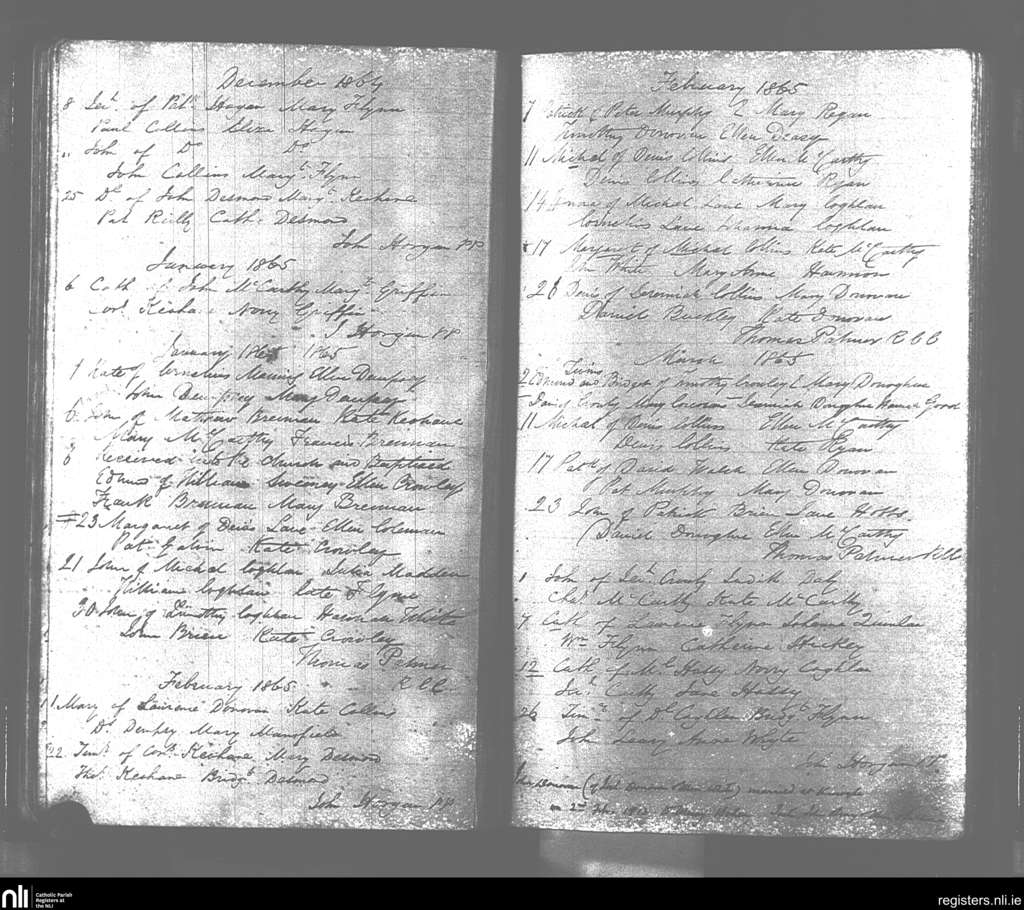 December 1864
8 Jer.h of Pat.k Hogan Mary Flynn
Paul Collins Eliza Hogan
" John of Do Do
John Collins Marg.t Flynn
25 D.l of John Desmond Marg.t Keohane
Pat Reilly Cath. Desmond
John Horgan PP
January 1865
6 Cath of John McCarthy Marg.t Griffin
Cor.l Keohane Nory Griffin
J Horgan PP
January 1865
1 Kate of Cornelius Manning Ellen Dempsey
John Dempsey Mary Dempsey
6 John of Mathew Brennan Kate Keohane
Mary McCarthy Francis Brennan
8 Received into Rc Church and Baptised
Edmd of William Sweeney Ellen Crowley
Frank Brennan Mary Brennan
23 Margaret of Denis Lane Ellen Coleman
Pat. Galvin Kate Crowley
21 John of Michal Coghlan Julia Madden
William Coghlan Kate Flynn
30 John of Timothy Coghlan Hannah White
John Brien Kate Crowley
Thomas Palmer
R C C
February 1865
11 Mary of Laurence Donovan Kate Collins
D.l Dempsey Mary Mansfield
22 Tim.y of Cor.l Keohane Mary Desmond
Tho.s Keohane Bridg.t Desmond
John Horgan PP
February 1865
7 Patrick of Peter Murphy & Mary Regan
Timothy Donovan Ellen Deasy
11 Michael of Denis Collins Ellen McCarthy
Denis Collins Catherine Ryan
14 Anna of Michel Lane Mary Coghlan
Cornelius Lane Johanna Coghlan
17 Margaret of Michael Collins Kate McCarthy
Wm White Mary Anne Hannon
28 Denis of Jeremiah Collins Mary Donovan
Daniel Buckley Kate Donovan
Thomas Palmer R C C
March 1865
Twins
2 Edmund and Bridget of Timothy Crowley & Mary Donoghue
Crowly Mary Corcoran Jeremiah Donoghue Hannah Good
11 Michal of Denis Collins Ellen McCarthy
Denis Collins Kate Ryan
17 Pat.k of David Walsh Ellen Donovan
Pat Murphy Mary Donovan
23 John of Patrick Brien Jane Hobbs
Daniel Donoghue Ellen McCarthy
Thomas Palmer RCC
1 John of Jer.h Crowly Judith Daly
Cha.s McCarthy Kate McCarthy
7 Cath of Laurence Flynn Johanna Quinlan
Wm Flynn Catherine Hickey
12 Cath of Ml Hussy Nory Coghlan
Jane Hussy
26 Tim.y of D.l Coghlan Bridg.t Flynn
John Leary Anne Whyte
John Horgan PP
married at
nli
Catholic Parish
Registers at
the NLI
registers.nli.ie